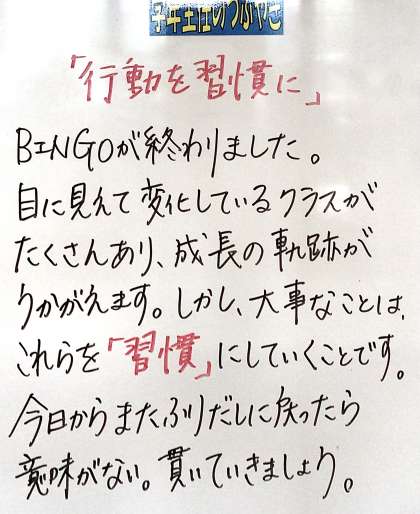 学年主任のつぶやき
「行動を習慣に」
BINGOが終わりました。
目に見えて変化しているクラスが
たくさんあり、成長の軌跡が
うかがえます。しかし、大事なことは、
これらを「習慣」にしていくことです。
今日からまたふりだしに戻ったら
意味がない。貫いていきましょう。